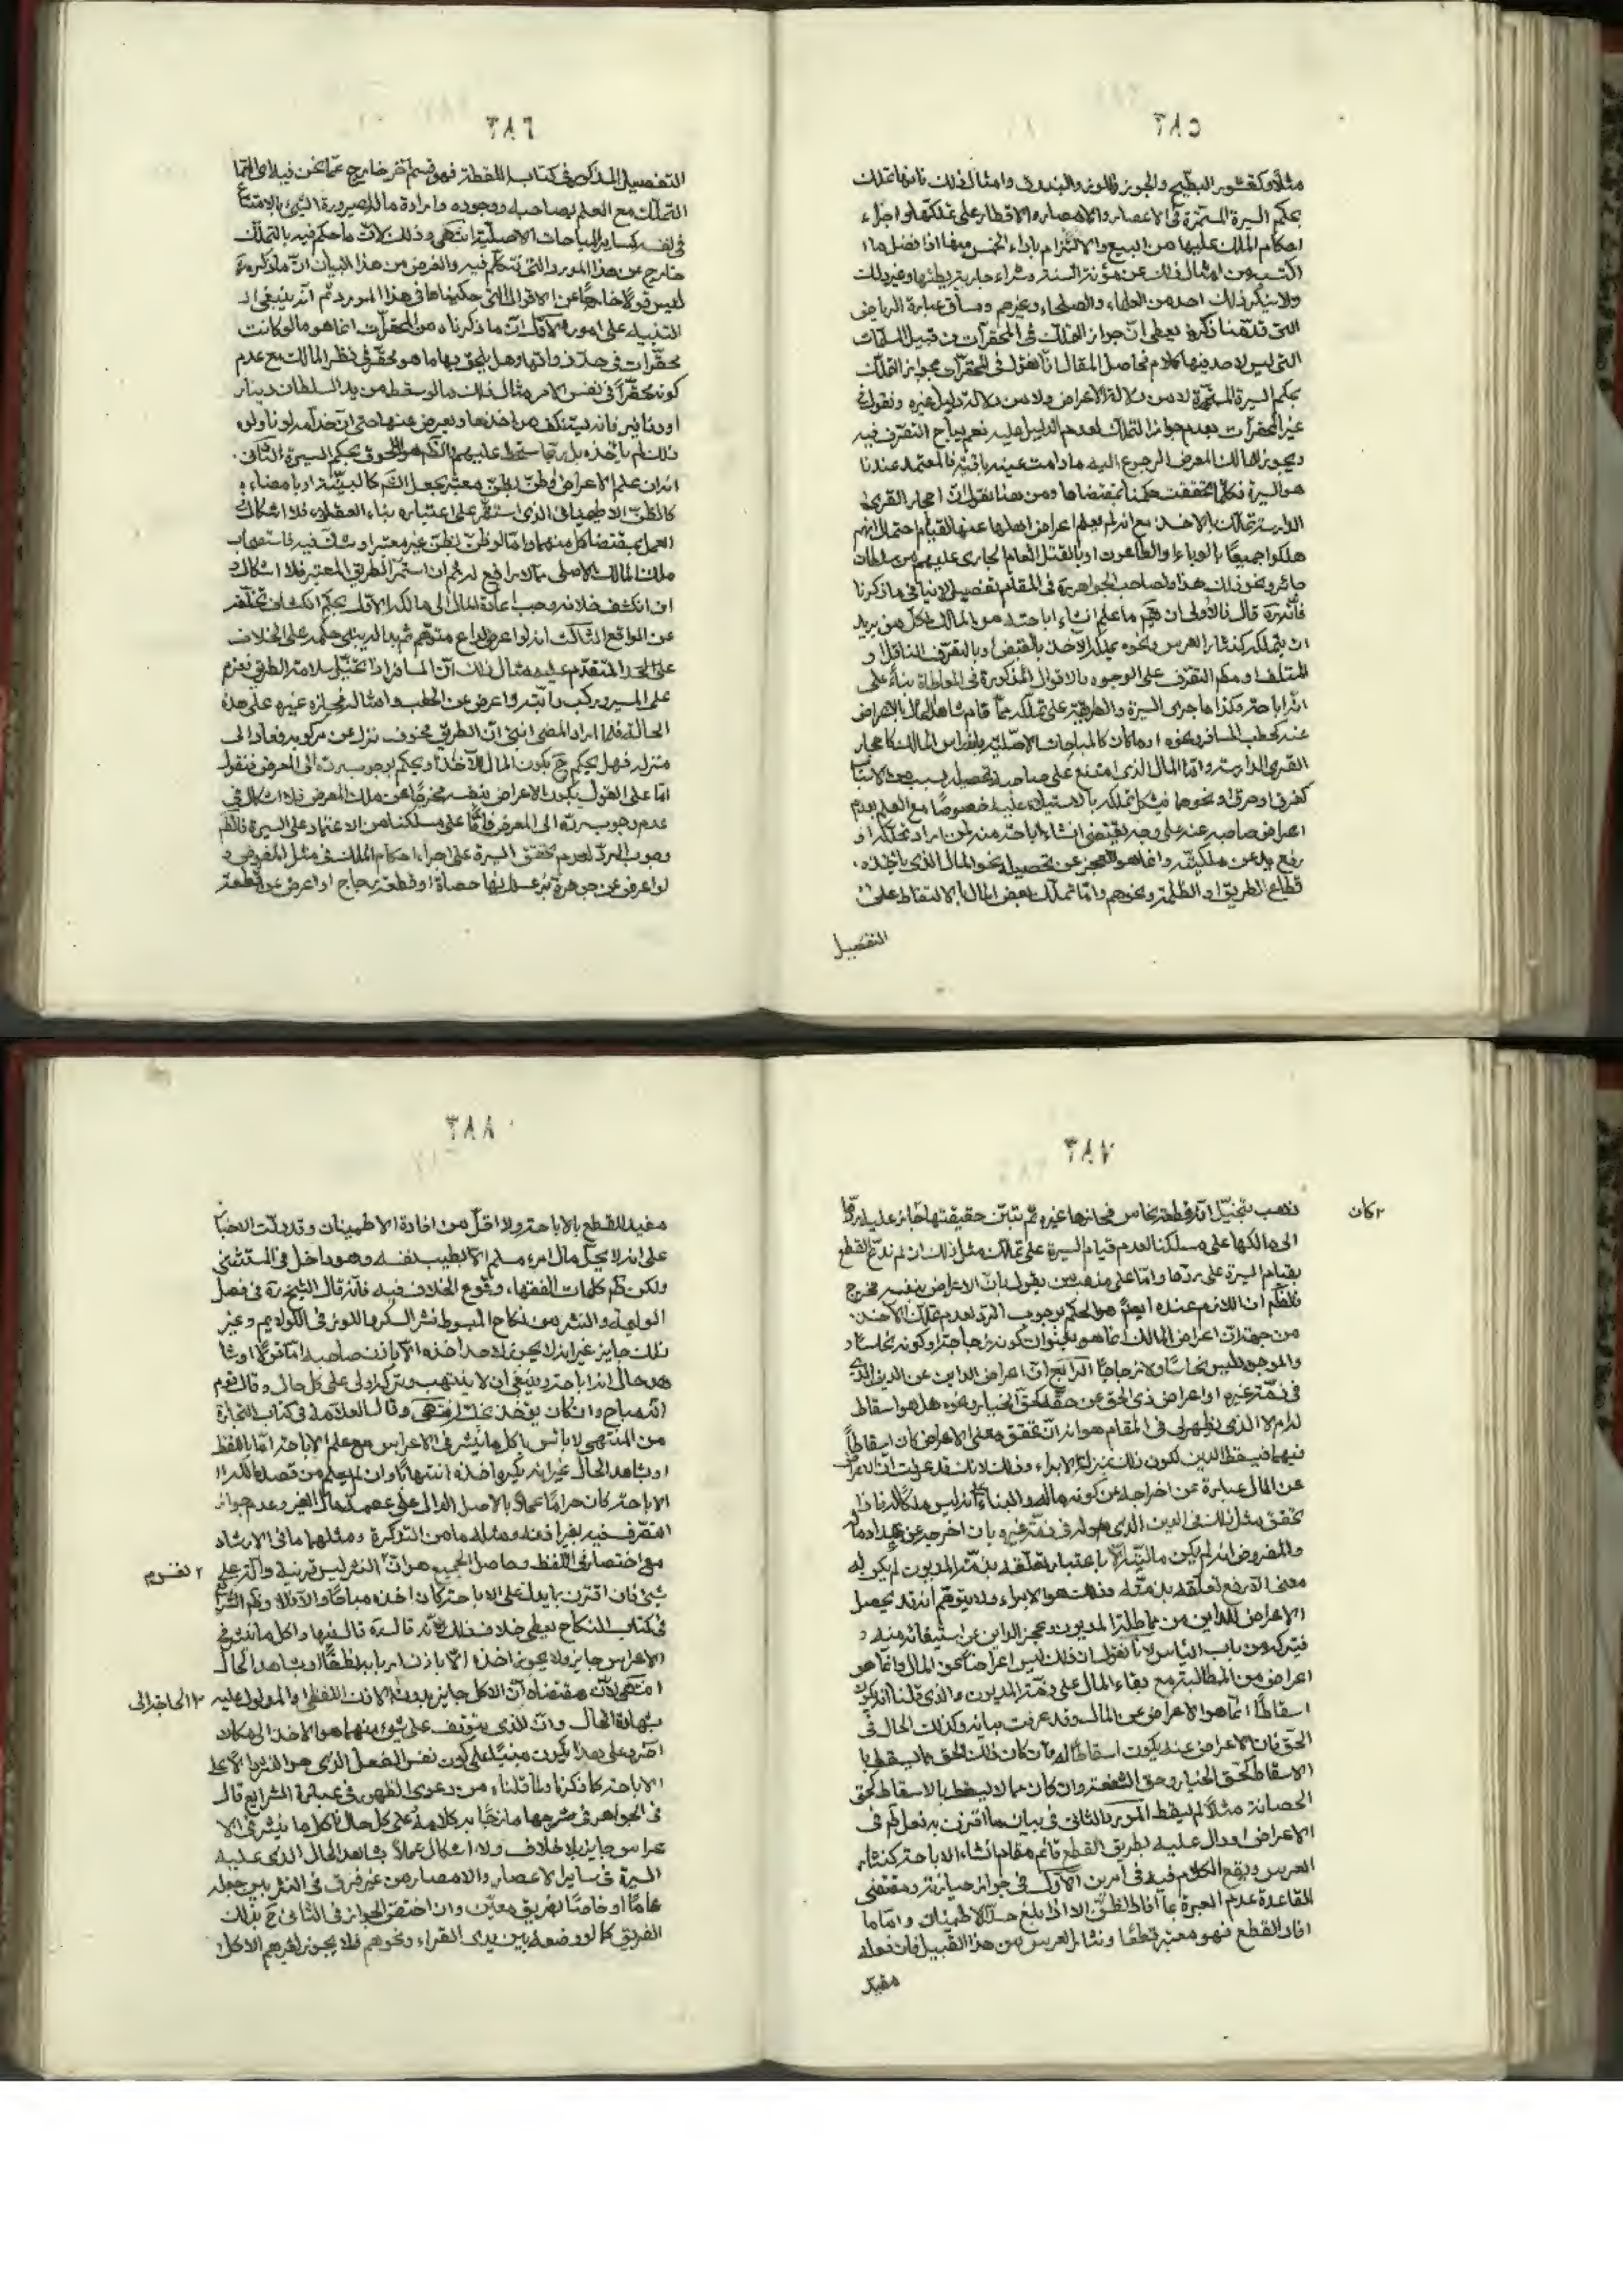 ٣٨٥
مثلاً وكقشور البطيخ والجوز واللوز والبندق وامثال ذلك فانها تملك
بحكم السيرة المستمرة فى الاعصار والامصار والاقطار على تملكها واجراء
احكام الملك عليها من البيع والالتزام باداء الخمس منها اذا فضل ما
اكتسب من امثال ذلك عن مؤنة السنة وشراء جارية ووطئها وغير ذلك
ولا ينكر ذلك احد من العلماء والصلحاء وغيرهم ومساق عبارة الرياض
التى قدمنا ذكرها يعطى ان جواز التملك فى المحقرات من قبيل المسلمات
التى ليس لاحد فيها كلام فحاصل المقال انا نقول فى المحقرات بجواز التملك
بحكم السيرة المستمرة لا من دلالة الاعراض ولا من دلالة دليل غيره ونقول فى
غير المحقرات بعدم جواز التملك لعدم الدليل عليه نعم يباح التصرف فيه
ويجوز للمالك المعرض الرجوع اليه ما دامت عينه باقية فالمعتمد عندنا
هو السيرة فكلما تحققت حكمنا بمقتضاها ومن هنا نقول ان احجار القرى
الدارسة تملك بالاخذ مع انه لم يعلم اعراض اهلها عنها لقيام احتمال انهم
هلكوا جميعًا بالوباء والطاعون او بالقتل العام الجارى عليهم من سلطان
جائر ونحو ذلك هذا ولصاحب الجواهر ره فى المقام تفصيل لا ينافى ما ذكرنا
فانه ره قال فالاولى ان يقم ما علم انشاء اباحته من المالك لكل من يريد
ان يتملكه كنثار العرس ونحوه يملكه الاخذ بالقبض او بالتصرف الناقل او
المتلف او مطلق التصرف على الوجوه والاقوال المذكورة فى المعاطاة بناء على
انها اباحة وكذا ما جرى السيرة والطريقة على تملكه مما قام شاهد الحال بالاعراض
عنه كحطب المسافر ونحوه او ما كان كالمباحات الاصلية باندراس المالك كاحجار
القرى الدارسة واما المال الذى امتنع على صاحبه تحصيله بسبب من الاسباب
كغرق او حرق او نحوهما فيشكل تملكه بالاستيلاء عليه خصوصًا مع العلم بعدم
اعراض صاحبه عنه على وجه يقتضى انشاء اباحة منه لمن اراد تملكه او
رفع يده عن ملكيته وانما هو للعجز عن تحصيله نحو المال الذى ياخذه
قطاع الطريق او الظلمة ونحوهم واما تملك بعض المال بالالتقاط على
التفصيل
٣٨٦
التفصيل المذكور فى كتاب اللقطة فهو قسم آخر خارج عما نحن فيه اى
التملك مع العلم بصاحبه ووجوده وارادة ماله لصيرورة الشئ بالامتناع
فى نفسه كساير المباحات الاصلية انتهى وذلك لان ما حكم فيه بالتملك
خارج عن هذا المورد الذى نتكلم فيه والغرض من هذا البيان ان ما ذكره ره
ليس قولًا خارجًا عن الاقوال التى حكيناها فى هذا المورد ثم انه ينبغى
التنبيه على امور الاول ان ما ذكرناه من المحقرات انما هو ما لو كانت
محقرات فى حد ذواتها وهل يلحق بها ما هو محقر فى نظر المالك مع عدم
كونه محقرًا فى نفس الامر مثال ذلك ما لو سقط من يد السلطان دينار
او دنانير فانه يستنكف من اخذها ويعرض عنها حتى ان خدامه لو ناولوه
ذلك لم ياخذه بل ربما سخط عليهم الظاهر هو اللحوق بحكم السيرة الثانى
انه ان علم الاعراض او ظن بظن معتبر بجعل الشرع كالبينة او بامضائه
كالظن الاطمينانى الذى استقر على اعتباره بناء العقلاء فلا اشكال
العمل بمقتضا كل منهما واما لو ظن بظن غير معتبر او شك فيه فاستصحاب
ملك المالك الاصلى مما لا رافع له ثم ان استمر الطريق المعتبر فلا اشكال و
ان انكشف خلافه وجب اعادة المال الى مالكه الاول بحكم انكشاف تخلفه
عن الواقع الثالث انه لو اعرض لداع متوهم ثم بدا له فيبتنى حكمه على الخلاف
على الحد المتقدم عليه مثال ذلك ان المسافر اذا تخيل سلامة الطريق فعزم
على المسير وركب دابته واعرض عن الحطب وامثاله فحازه غيره على هذه
الحالة فلما اراد المضى انبئ ان الطريق مخوف نزل عن مركوبه وعاد الى
منزله فهل يحكم ح بكون المال للآخذ او يحكم بوجوب رده الى المعرض فنقول
اما على القول بكون الاعراض بنفسه مخرجًا عن ملك المعرض فلا اشكال فى
عدم وجوب رده الى المعرض واما على مسلكنا من الاعتماد على السيرة فالظاهر
وجوب الرد لعدم تحقق السيرة على اجراء احكام الملك فى مثل المفروض و
لو اعرض عن جوهرة بزعم انها حصاة او قطعة زجاج او اعرض عن قطعة
٣٨٧
ذهب بتخيل انه قطعة نحاس فحازها غيره ثم تبين حقيقتها فالحائز عليه ردها
٢ كان
الى مالكها على مسلكنا لعدم قيام السيرة على تملك مثل ذلك ان لم ندع القطع
بقيام السيرة على ردها واما على مذهب من يقول بان الاعراض بنفسه مخرج
فالظاهر ان اللازم عنده ايضًا هو الحكم بوجوب الرد لعدم تملك الآخذ
من جهة ان اعراض المالك انما هو بعنوان كونه زجاجة او كونه نحاسًا و
والموجود ليس نحاسًا ولا زجاجًا الرابع ان اعراض الداين عن الدين الذى
فى ذمة غيره او اعراض ذى الحق عن حقه كحق الخيار ونحوه هل هو اسقاط
له ام لا الذى يظهر لى فى المقام هو انه ان تحقق معنى الاعراض كان اسقاطًا
فيهما فيسقط الدين لكون ذلك بمنزلة الابراء وذلك لانك قد عرفت ان الاعراض
عن المال عبارة عن اخراجه عن كونه ماله والبناء على انه ليس ملكًا له فاذا
تحقق مثل ذلك فى الدين الذى هو له فى ذمة غيره بان اخرجه عن عداد ماله
والمفروض انه لم يكن مالية الا باعتبار تعلقه بذمة المديون لم يكن له
معنى الا رفع تعلقه بذمته وذلك هو الابراء ولا يتوهم انه قد يحصل
الاعراض للداين من مماطلة المديون وعجز الداين عن استيفائه منه
فيتركه من باب الياس لانا نقول ان ذلك ليس اعراضًا عن المال وانما هو
اعراض من المطالبة مع بقاء المال على ذمة المديون والذى قلنا انه يكون
اسقاطًا انما هو الاعراض عن المال وقد عرفت بيانه وكذلك الحال فى
الحق فان الاعراض عنه يكون اسقاطًا له فان كان ذلك الحق مما يسقط با
الاسقاط كحق الخيار وحق الشفعة وان كان مما لا يسقط بالاسقاط كحق
الحضانة مثلًا لم يسقط المورد الثانى فى بيان ما اقترن به فعل ظاهر فى
الاعراض او دال عليه بطريق القطع قائم مقام انشاء الاباحة كنثار
العرس ويقع الكلام فيه فى امرين الاول فى جواز حيازته ومقتضى
القاعدة عدم العبرة بما افاد الظن الا اذا بلغ حد الاطمينان واما ما
افاد القطع فهو معتبر قطعًا ونثار العرس من هذا القبيل فان فعله
مفيد
٣٨٨
مفيد للقطع بالاباحة ولا اقل من افادة الاطمينان وقد دلت الاخبار
على انه لا يحل مال امرء مسلم الا بطيب نفسه وهو داخل فى المستثنى
ولكن ظاهر كلمات الفقهاء وقوع الخلاف فيه فانه قال الشيخ ره فى فصل
الوليمة والنثر من نكاح المبسوط نثر السكر واللوز فى الولايم وغير
ذلك جايز غير انه لا يجوز لاحد اخذه الا باذن صاحبه اما قولًا او شا
هد حال انه اباحة وينبغى ان لا ينتهب وتركه اولى على كل حال وقال قوم
انه مباح وان كان يؤخذ بخلسة انتهى وقال العلامة فى كتاب التجارة
من المنتهى لا باس باكل ما ينثر فى الاعراس مع علم الاباحة اما باللفظ
او بشاهد الحال غير انه يكره اخذه انتهابًا وان لم يعلم من قصد مالكه
الاباحة كان حرامًا عملًا بالاصل الدال على عصمة مال الغير وعدم جواز
التصرف فيه بغير اذنه ومثله ما من التذكرة ومثلهما ما فى الارشاد
مع اختصار فى اللفظ وحاصل الجميع هو ان النثر ليس قرينة والة على
٢ لفهوم
شئ فان اقترن بما يدل على الاباحة كان اخذه مباحًا والا فلا وظاهر الشرايع
فى كتاب النكاح يعطى خلاف ذلك لانه قال ره قال فيها واكل ما ينثر فى
الاعراس جايز ولا يجوز اخذه الا باذن اربابه نطقًا او بشاهد الحال
انتهى لان مقتضاه ان الاكل جايز بدون الاذن اللفظى والمدلول عليه
٢ الحاضر الى
بشهادة الحال وان الذى يتوقف على شئ منهما هو الاخذ الى مكان
اخر وعلى هذا يكون مبنيًا على كون نفس الفعل الذى هو النثر دالًا على
الاباحة كما ذكرنا ولما قلناه من دعوى الظهور فى عبارة الشرايع قال
فى الجواهر فى شرحها مازجًا به كلامه وعلى كل حال فاكل ما ينثر فى الا
عراس جايز بلا خلاف ولا اشكال عملًا بشاهد الحال الذى عليه
السيرة فى ساير الاعصار والامصار من غير فرق فى النثر بين جعله
عامًا او خاصًا لفريق معين وان اختص الجواز فى الثانى ح بذلك
الفريق كما لو وضعه بين يدى القراء ونحوهم فلا يجوز لغيرهم الاكل